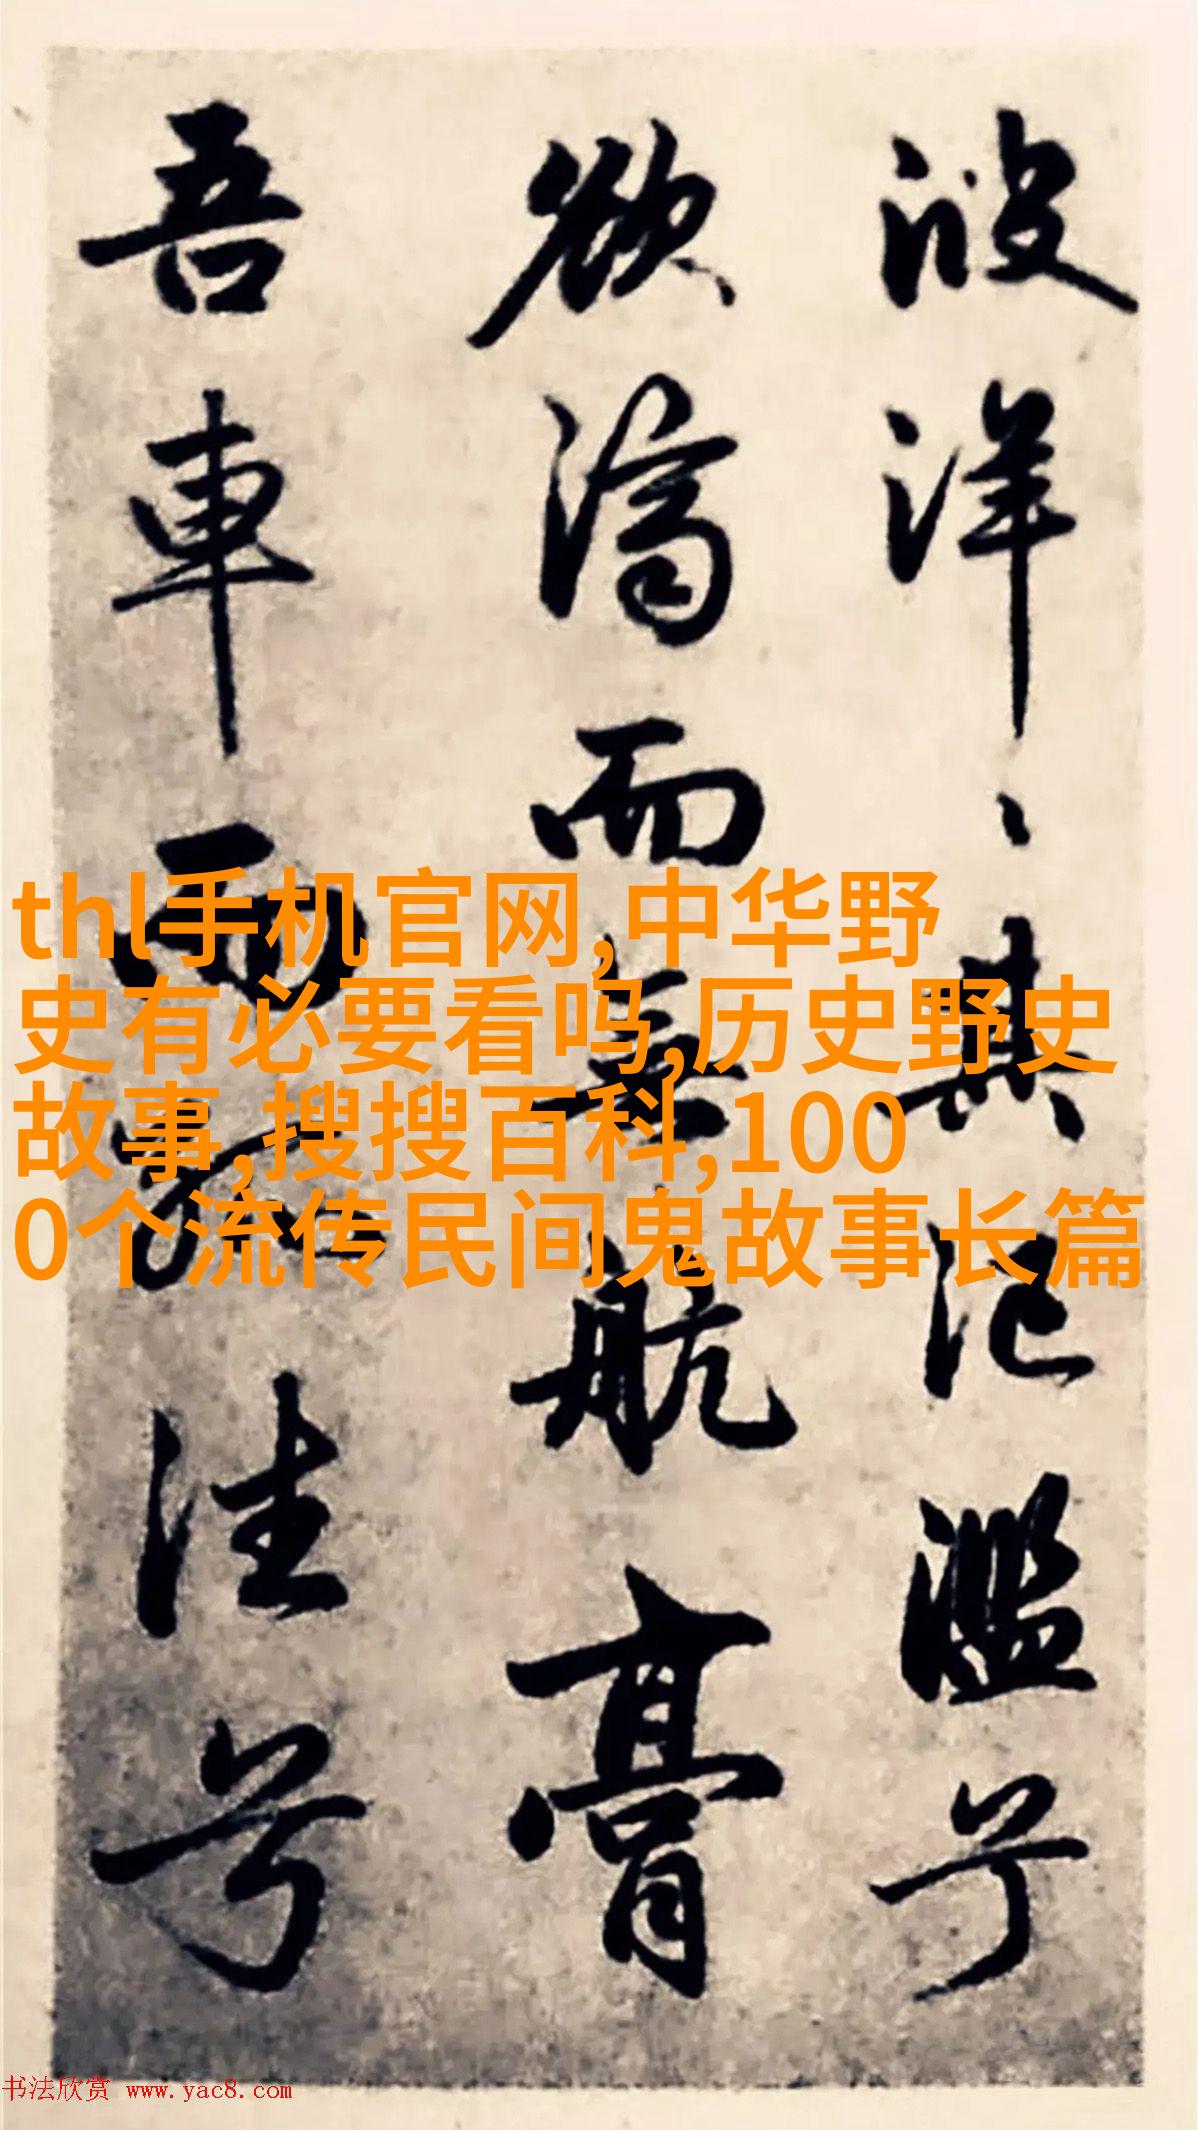 洋〻其氾濫兮
欲濟而無航膏
吾車而兮
thl手机官网,中华野
史有必要看吗,历史野史
故事,搜搜百科,100
0个流传民间鬼故事长篇
书法欣赏 www.yac8.com